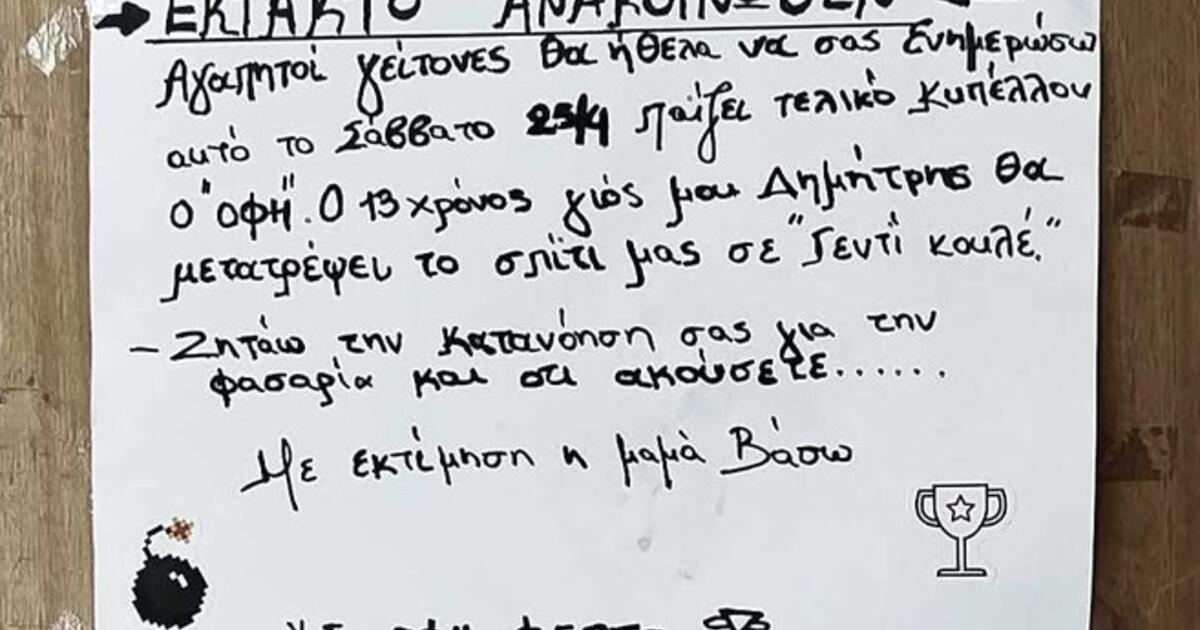 ΕΚΤΑΚΤΟ ΑΝΑΚΟΙΝΩΘΕΝ
Αγαπητοί γείτονες θα ήθελα να σας ενημερώσω
αυτό το Σάββατο 25/4 παίζει τελικό κυπέλλου
ο "ΟΦΗ". Ο 13χρόνος γιός μου Δημήτρης θα
μετατρέψει το σπίτι μας σε "Γεντί κουλέ."
- Ζητάω την κατανόηση σας για την
φασαρία και ότι ακούσετε......
Με εκτίμηση η μαμά Βάσω